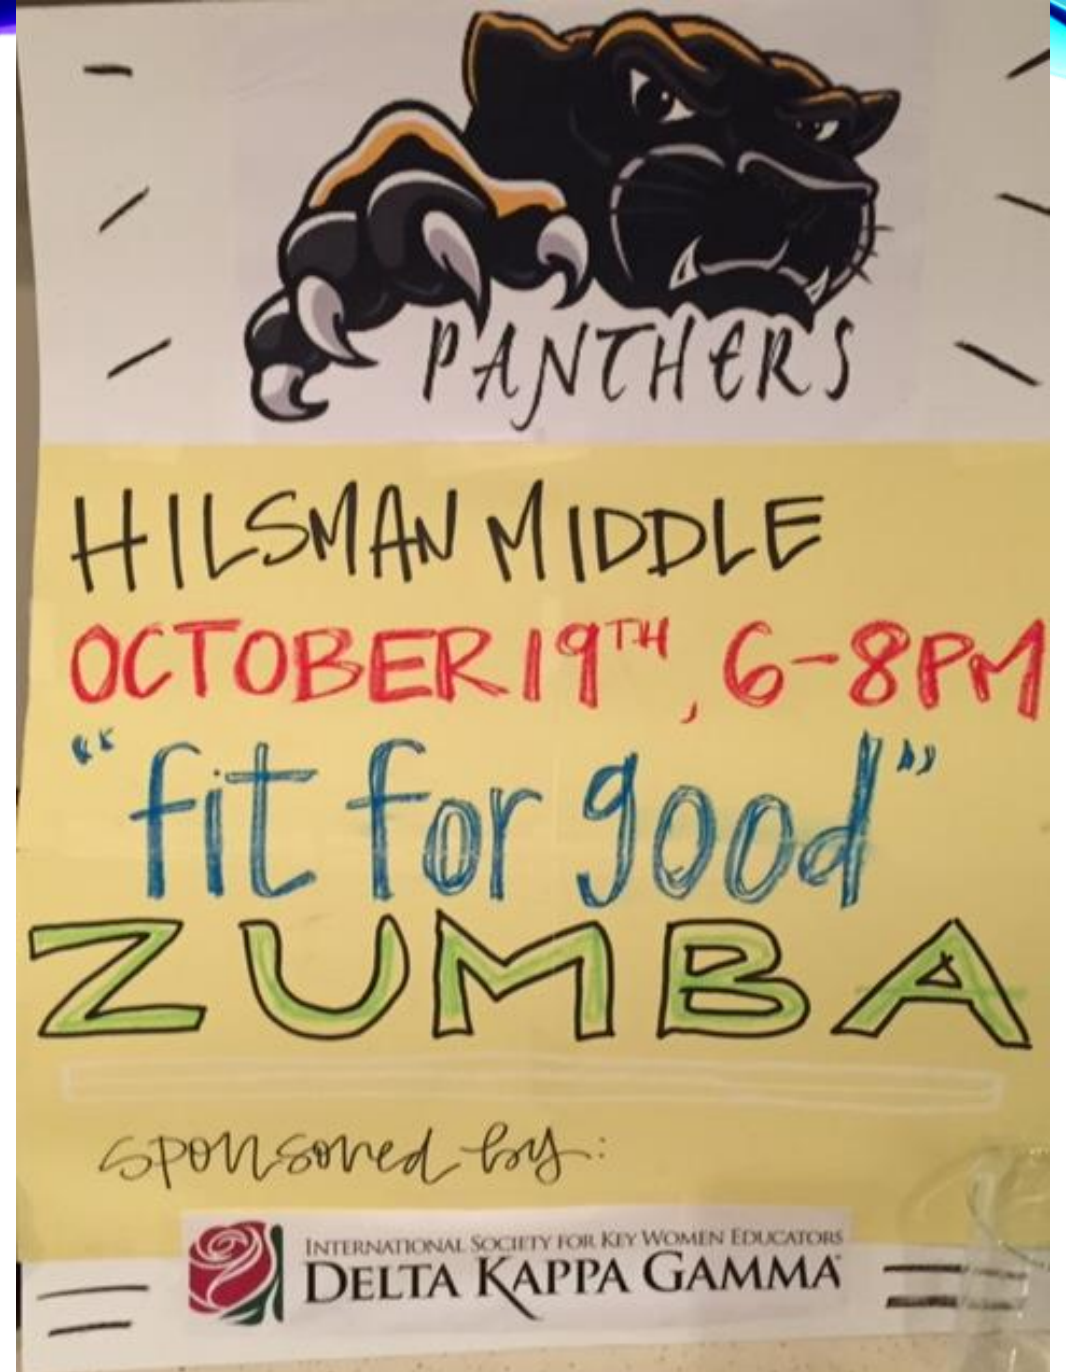 PANTHERS
HILSMAN MIDDLE
OCTOBER 19TH, 6-8PM
"fit for good"
ZUMBA
sponsored by:
INTERNATIONAL SOCIETY FOR KEY WOMEN EDUCATORS
DELTA KAPPA GAMMA